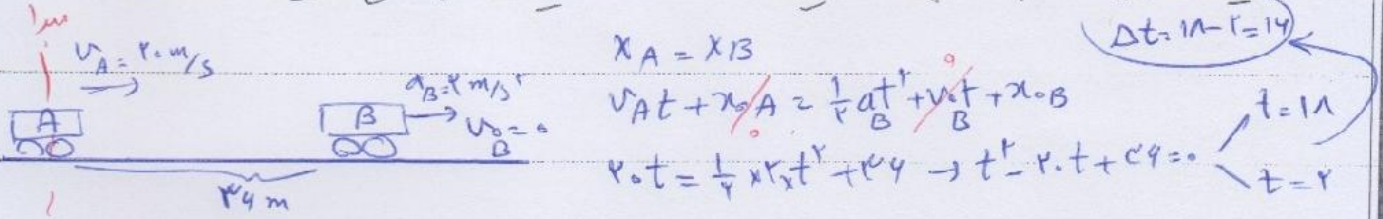 مبدأ
v_A = ۲۰ m/s
A
a_B = ۲ m/s^۲
B
v_{0B} = ۰
۳۶ m
x_A = x_B
v_A t + x_{0A} = ۱/۲ a_B t^۲ + v_{0B} t + x_{0B}
۰
۰
۲۰t = ۱/۲ × ۲ × t^۲ + ۳۶ → t^۲ - ۲۰t + ۳۶ = ۰
t = ۱۸
t = ۲
Δt = ۱۸ - ۲ = ۱۶